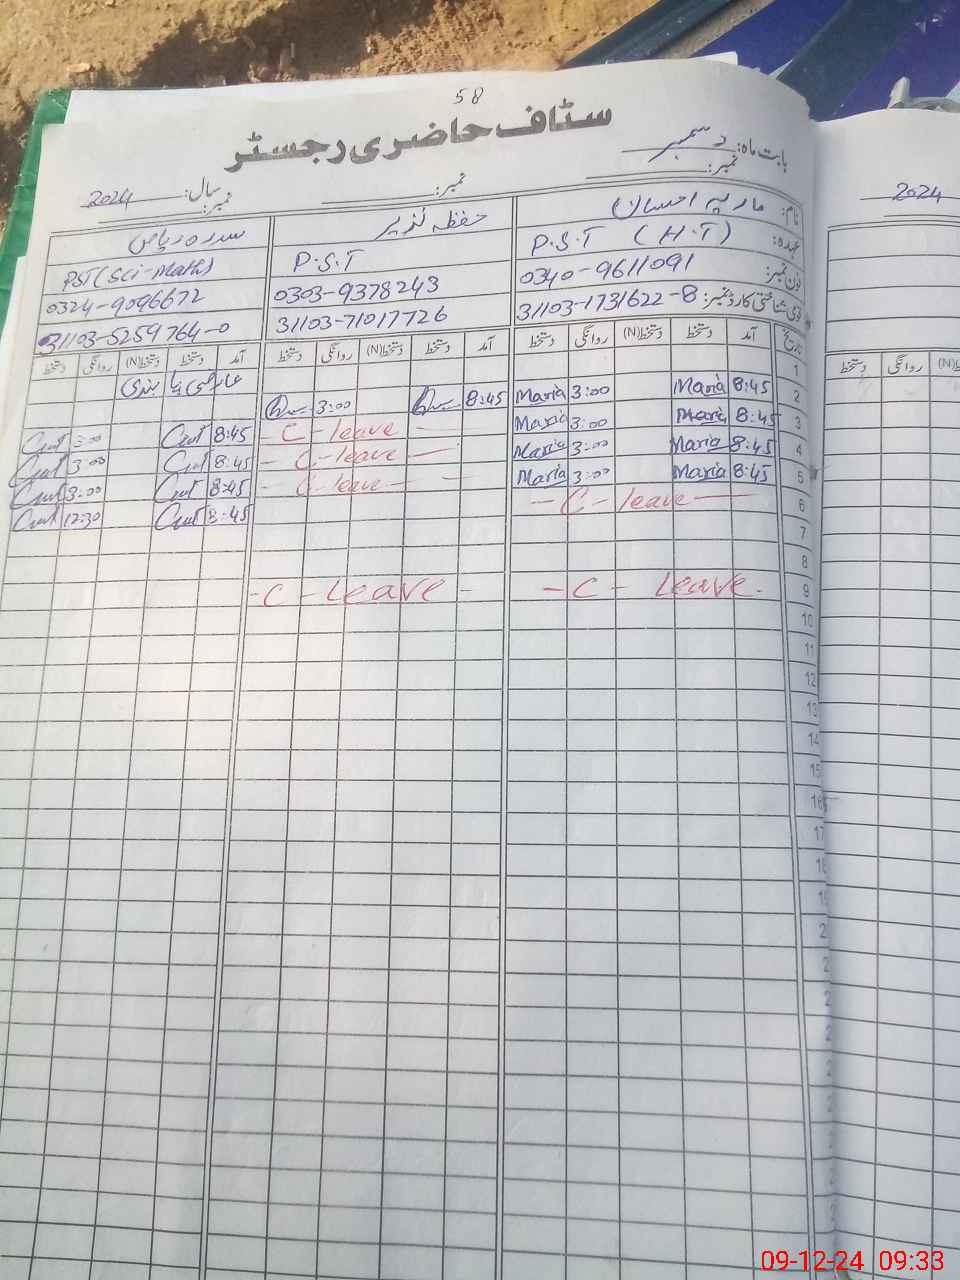 58
سٹاف حاضری رجسٹر
بابت ماہ: دسمبر
نمبر: نمبر: سال: 2024 نمبر:
2024
نام: ماریہ احسان حفظہ نذیر سدرہ ریاض
عہدہ: P.S.T (H.T) P.S.T PST (Sci-Math)
فون نمبر: 0340-9611091 0303-9378243 0324-9096672
قومی شناختی کارڈ نمبر: 31103-1731622-8 31103-71017726 31103-5259764-0
تاریخ آمد دستخط دستخط(N) روانگی دستخط آمد دستخط دستخط(N) روانگی دستخط آمد دستخط دستخط(N) روانگی دستخط
دستخط روانگی
1
2 8:45 Maria 3:00 Maria 8:45 3:00 عارضی پابندی
3 8:45 Maria 3:00 Maria - C - leave - 8:45 3:00
4 8:45 Maria 3:00 Maria - C - leave - 8:45 3:00
5 8:45 Maria 3:00 Maria - C - leave - 8:45 3:00
6 - C - leave - 8:45 12:30
7
8
9 - C - Leave - - C - Leave -
10
11
12
13
14
15
16
17
18
09-12-24 09:33